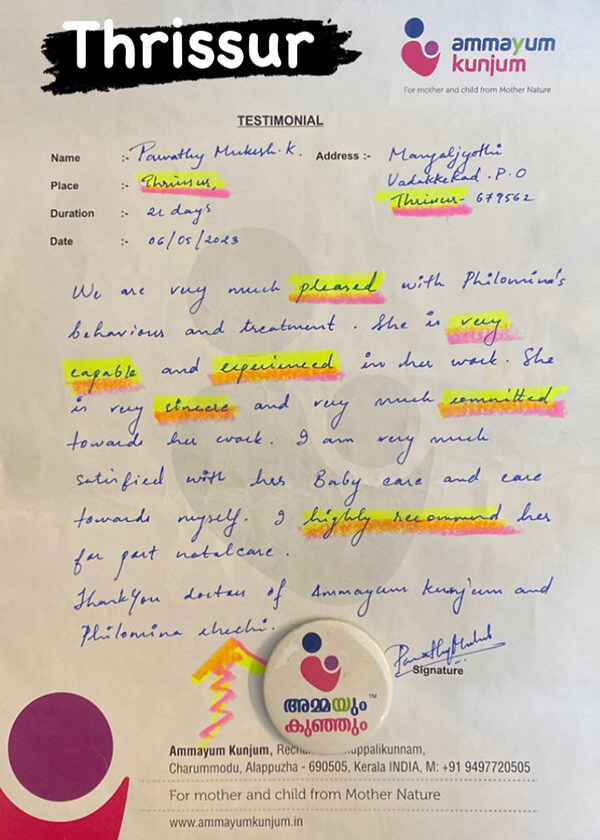 Thrissur
ammayum
kunjum
For mother and child from Mother Nature
TESTIMONIAL
Name :- Parvathy Mukesh.K. Address :- Mangaljyothi
Vadakkekad.P.O
Place :- Thrissur, Thrissur- 679562
Duration :- 21 days
Date :- 06/05/2023
We are very much pleased with Philomina's
behaviour and treatment. She is very
capable and experienced in her work. She
is very sincere and very much committed
towards her work. I am very much
satisfied with her Baby care and care
towards myself. I highly recommend her
for post natalcare.
ThankYou doctors of Ammayum Kunjum and
Philomina chechi.
Signature
അമ്മയും™
കുഞ്ഞും
Ammayum Kunjum, uppalikunnam,
Charummodu, Alappuzha - 690505, Kerala INDIA, M: +91 9497720505
For mother and child from Mother Nature
www.ammayumkunjum.in